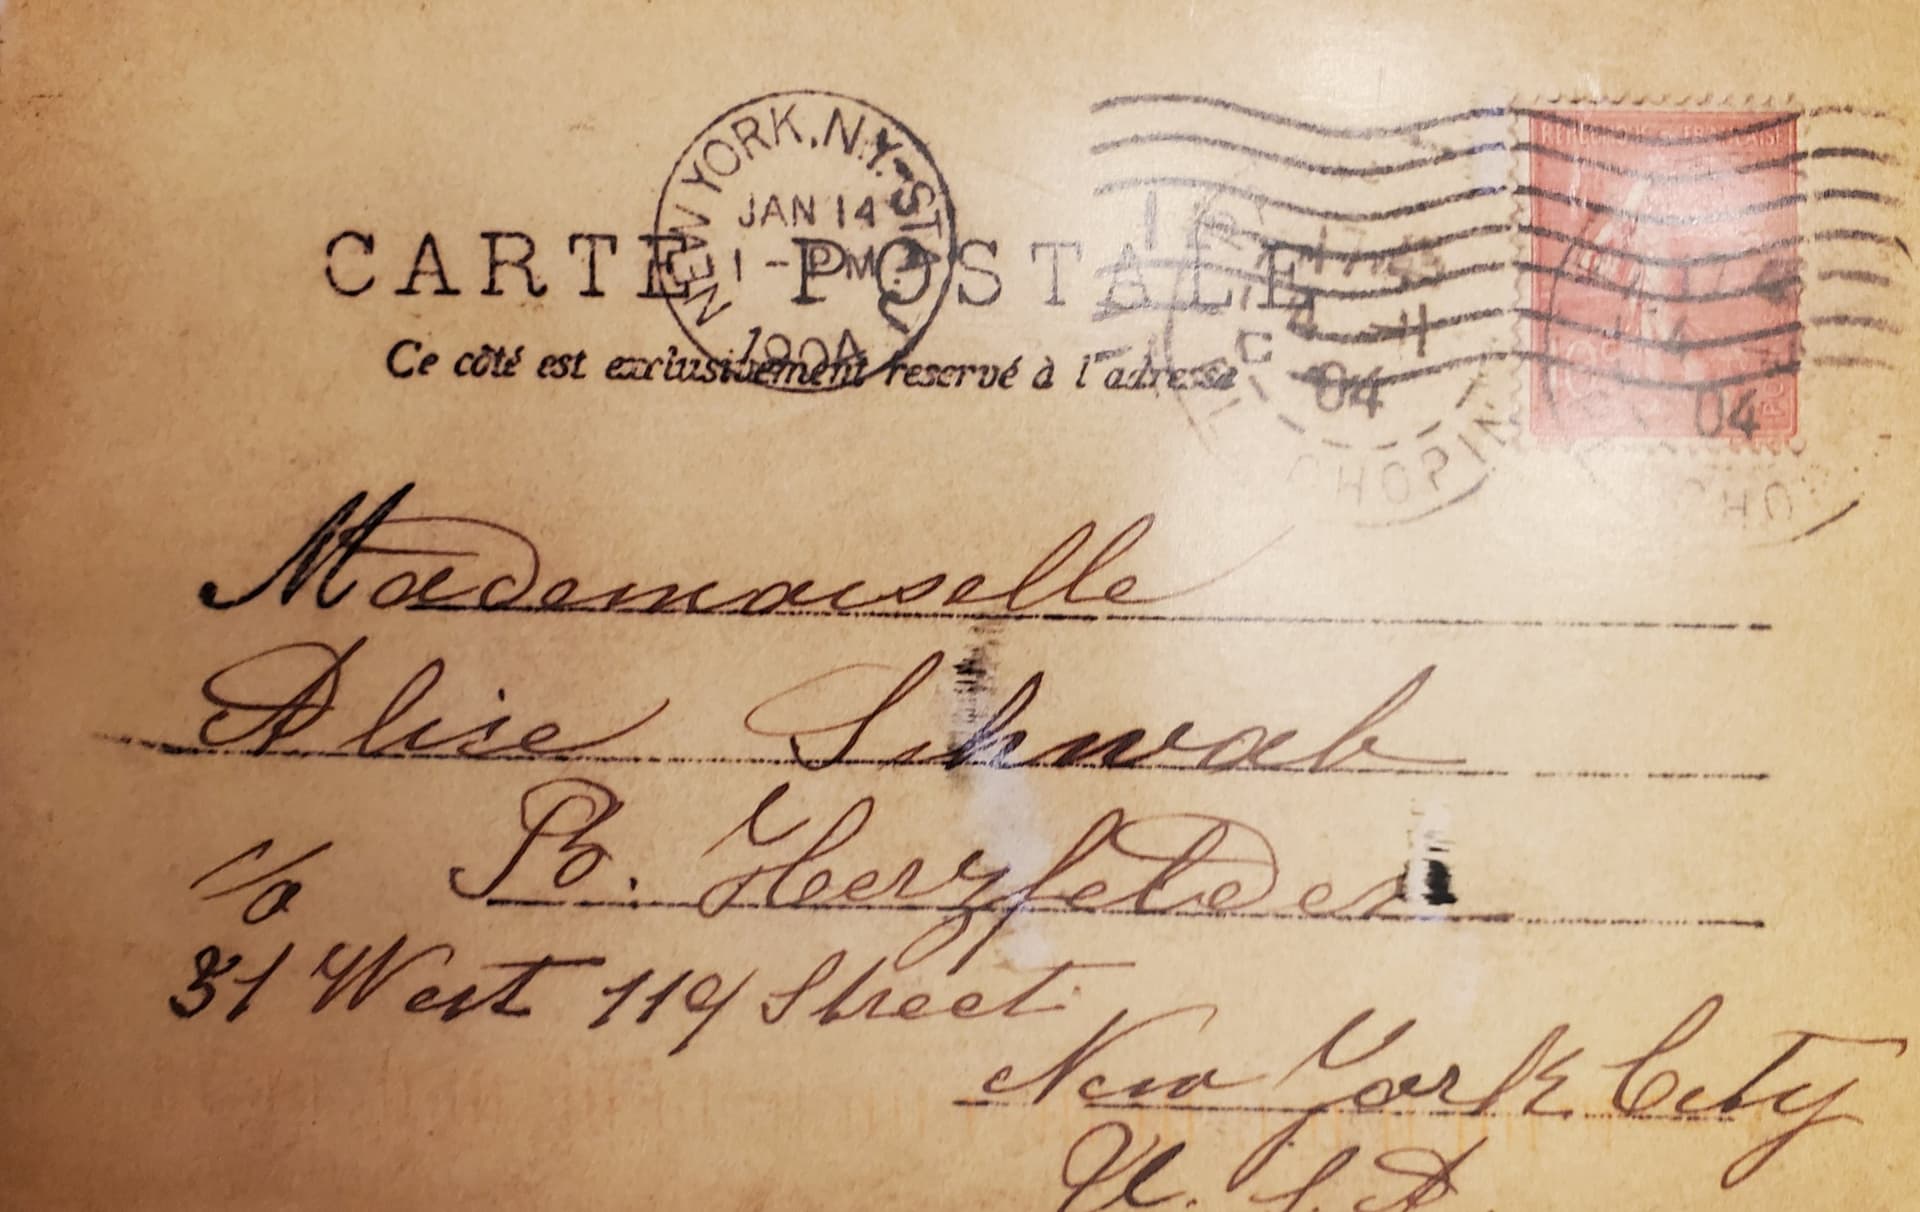 NEW YORK, N.Y. STA. J
JAN 14
1 - PM
1904
REPUBLIQUE FRANÇAISE
10c
04
CHOPIN
04
CHO
CARTE POSTALE
Ce côté est exclusivement reservé à l'adresse
Mademoiselle
Alice Schwab
c/o B. Herzfelder
31 West 119 Street
New York City
U. S. A.